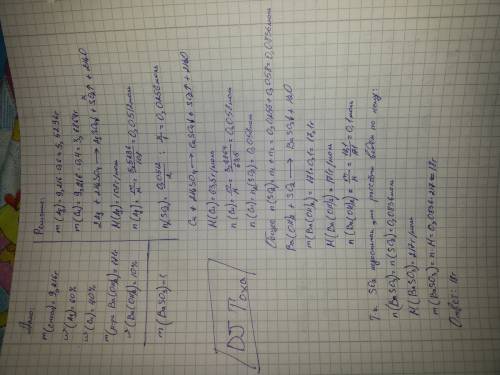 Дано:
m(смеси)=9,216г
ω(Ag)=60%
ω(Cu)=40%
m(р-ра Ba(OH)₂)=171г
ω(Ba(OH)₂)=10%
m(BaSO₃)-?
Решение:
m(Ag)=9,216·0,6=5,5296г
m(Cu)=9,216·0,4=3,6864г
2Ag+2H₂SO₄→Ag₂SO₄+SO₂↑+2H₂O
M(Ag)=108г/моль
n(Ag)=m/M=5,5296/108=0,0512моль
n(SO₂)=0,0512/2=0,0256моль
Cu+2H₂SO₄→CuSO₄+SO₂↑+2H₂O
M(Cu)=63,5г/моль
n(Cu)=m/M=3,6864/63,5=0,058моль
n(Cu)=n₂(SO₂)=0,058моль
Общее n(SO₂)=n₁+n₂=0,0256+0,058=0,0836моль
Ba(OH)₂+SO₂→BaSO₃↓+H₂O
m(Ba(OH)₂)=171·0,1=17,1г
M(Ba(OH)₂)=171г/моль
n(Ba(OH)₂)=m/M=17,1/171=0,1моль
Т.к. SO₂ в ... , то расчёты ведём по нему:
n(BaSO₃)=n(SO₂)=0,0836моль
M(BaSO₃)=217г/моль
m(BaSO₃)=n·M=0,0836·217=18г
Ответ: 18г
DJ Тоха